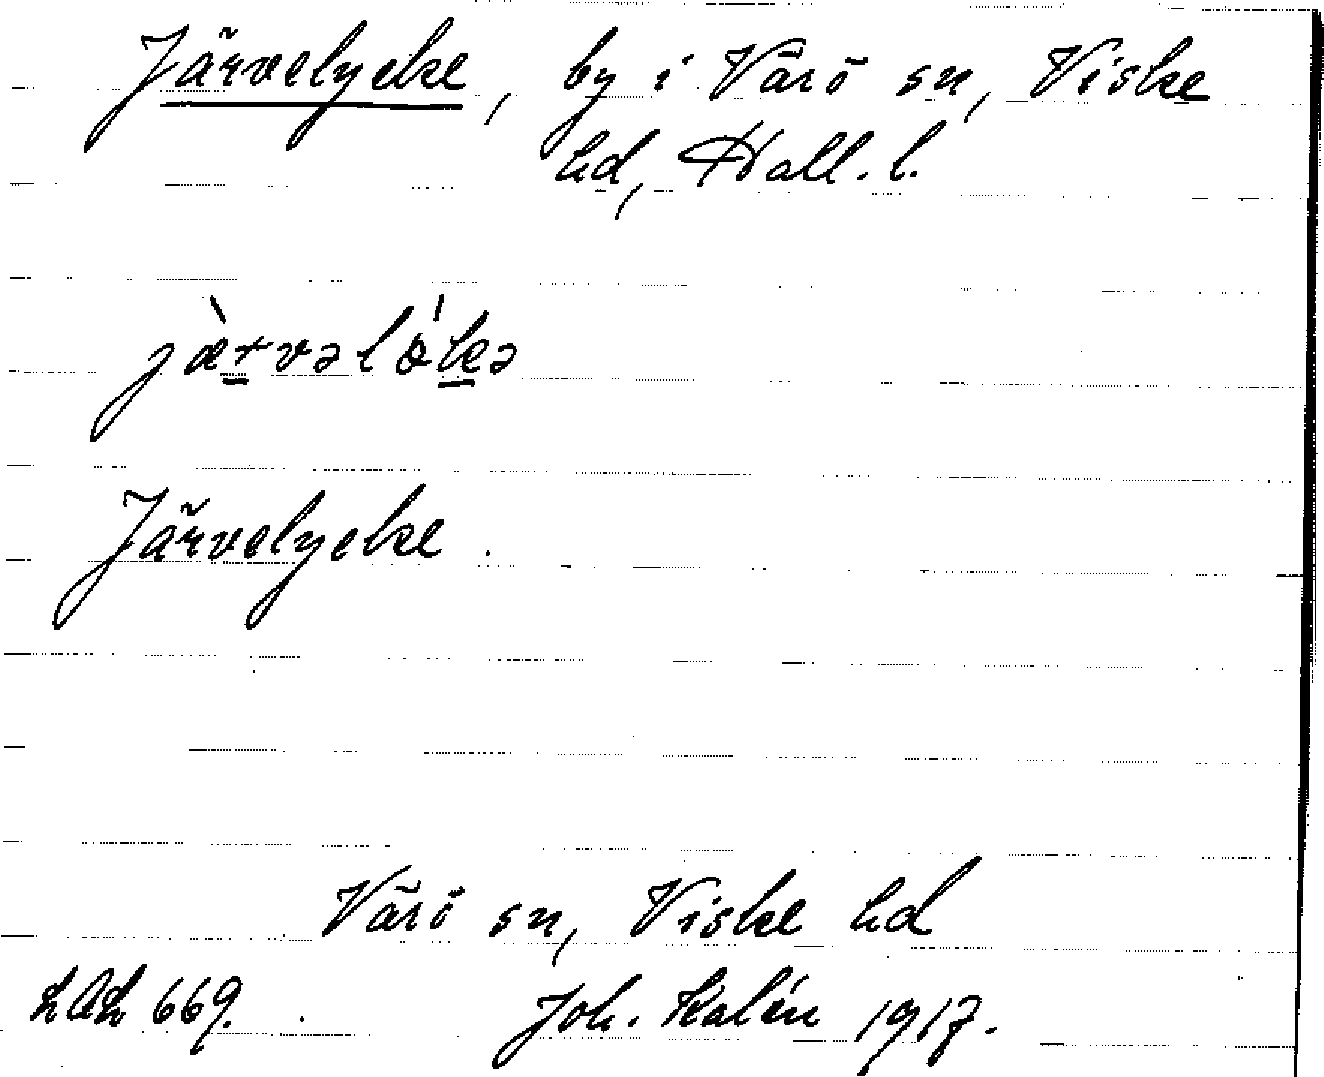 Järvelycke, by i Värö sn, Viske
hd, Hall. l.
jæ̀rvəlǿkə
Järvelycke.
Värö sn, Viske hd
Joh. Kalén 1917.